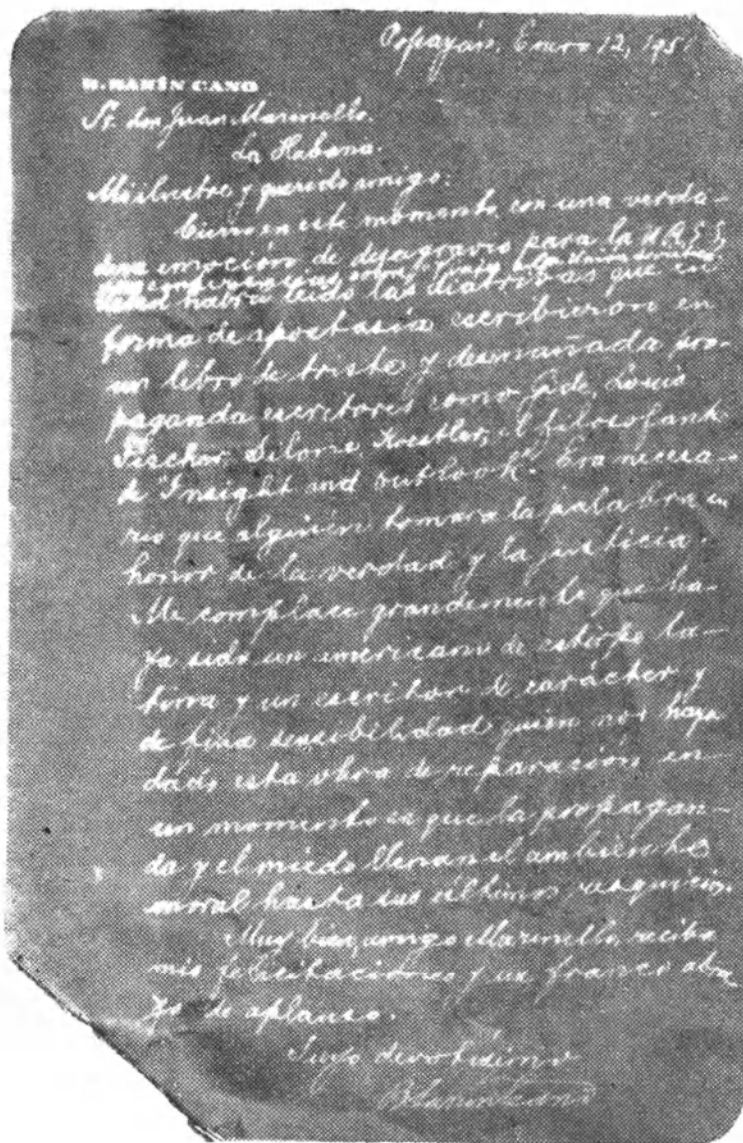 Popayán, Enero 12, 195
B. SANÍN CANO
Sr. don Juan Marinello.
La Habana.
Mi ilustre y querido amigo:
Cierro en este momento, con una verda-
dera emoción de desagravio para la U.R.S.S.
sus conferencias sobre y la Unión Soviética.
habrá leído las diatribas que en
forma de apostasía escribieron en
un libro de triste y desmañada pro-
paganda escritores como Gide, Louis
Fischer, Silone, Koestler, el filosofante
de "Insight and Outlook". Era necesa-
rio que alguien tomara la palabra en
honor de la verdad y la justicia.
Me complace grandemente que ha-
ya sido un americano de estirpe la-
tina y un escritor de carácter y
de fina sensibilidad quien nos haya
dado esta obra de reparación en
un momento en que la propagan-
da y el miedo llenan el ambiente
moral hasta sus últimos resquicios.
Muy bien, amigo Marinello, reciba
mis felicitaciones y un franco abra-
zo de aplauso.
Suyo devotísimo
B. Sanín Cano